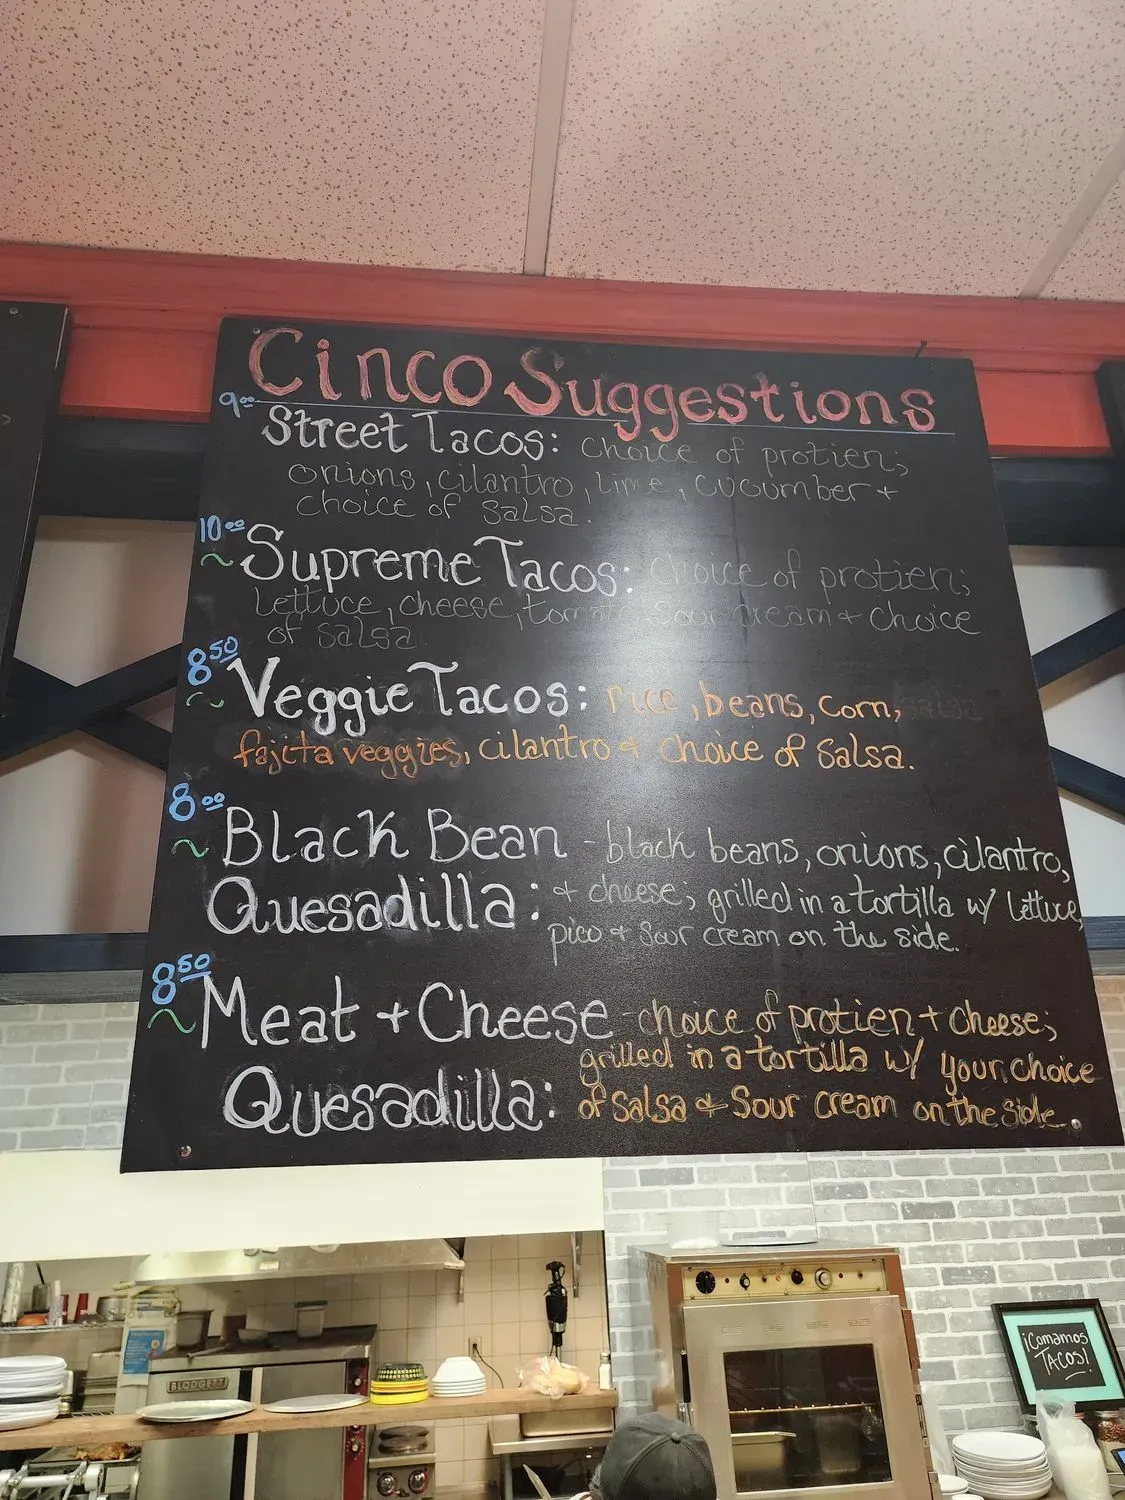 Cinco Suggestions
9.00
Street Tacos: choice of protien;
onions, cilantro, lime, cucumber +
choice of salsa.
10.00
~ Supreme Tacos: choice of protien;
lettuce, cheese, tomato sour cream + choice
of salsa
8.50
~ Veggie Tacos: rice, beans, corn, salsa
fajita veggies, cilantro + choice of salsa.
8.00
~ Black Bean - black beans, onions, cilantro,
Quesadilla: + cheese; grilled in a tortilla w/ lettuce,
pico + sour cream on the side.
8.50
~ Meat + Cheese - choice of protien + cheese;
grilled in a tortilla w/ your choice
Quesadilla: of salsa + sour cream on the side.
BLODGETT
¡Comamos
TACOS!